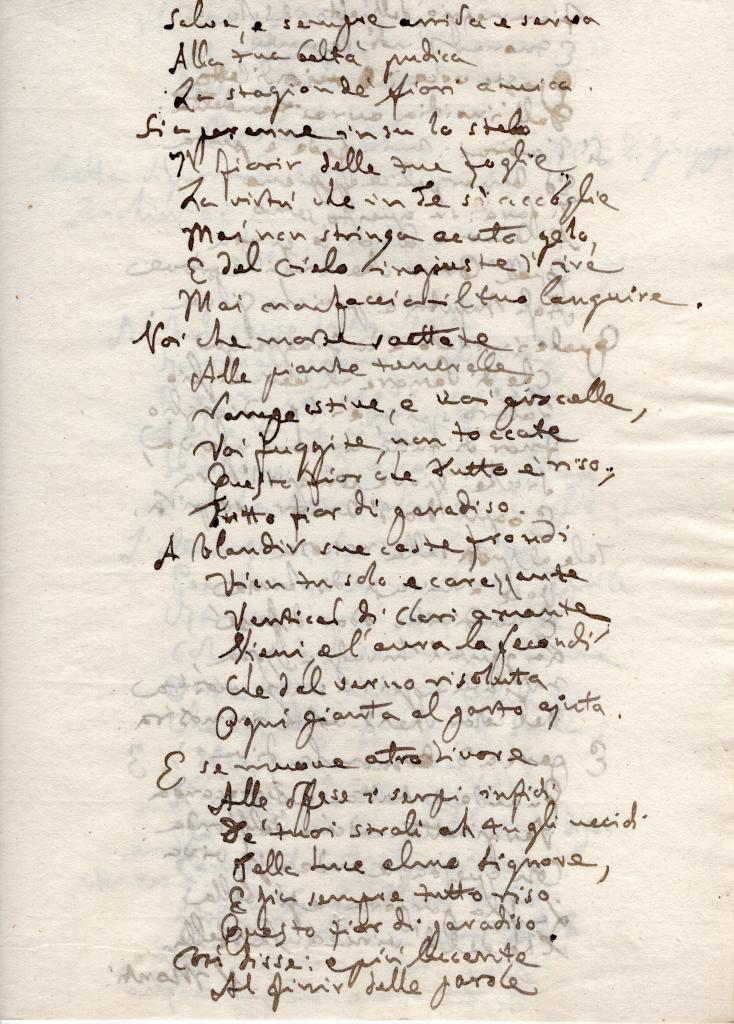 Salve, e sempre arrisa e serva
Alla tua beltà pudica
La stagion de' fiori amica.
Sia perenne in su lo stelo
Il fiorir delle tue foglie,
La virtù che in Te s'accoglie
Mai non stringa acuto gelo,
E del Cielo ingiuste l'ire
Mai non faccian il tuo languire.
Voi che morte saettate
Alle piante tenerelle
Vampe estive, e voi procelle,
Voi fuggite, non toccate
Questo fior che tutto è riso,
Tutto fior di paradiso.
A blandir sue caste frondi
Vien tu solo e carezzante
di Clori amante
Vieni, e l'aura la fecondi
Che dal verno risoluta
Ogni pianta al parto ajuta.
E se muove atro livore
Alle offese i serpi infidi
De' tuoi strali ah tu gli uccidi
Della luce almo Signore,
E sia sempre tutto riso
Questo fior di paradiso.
Così disse: e più lucente
Al finir delle parole